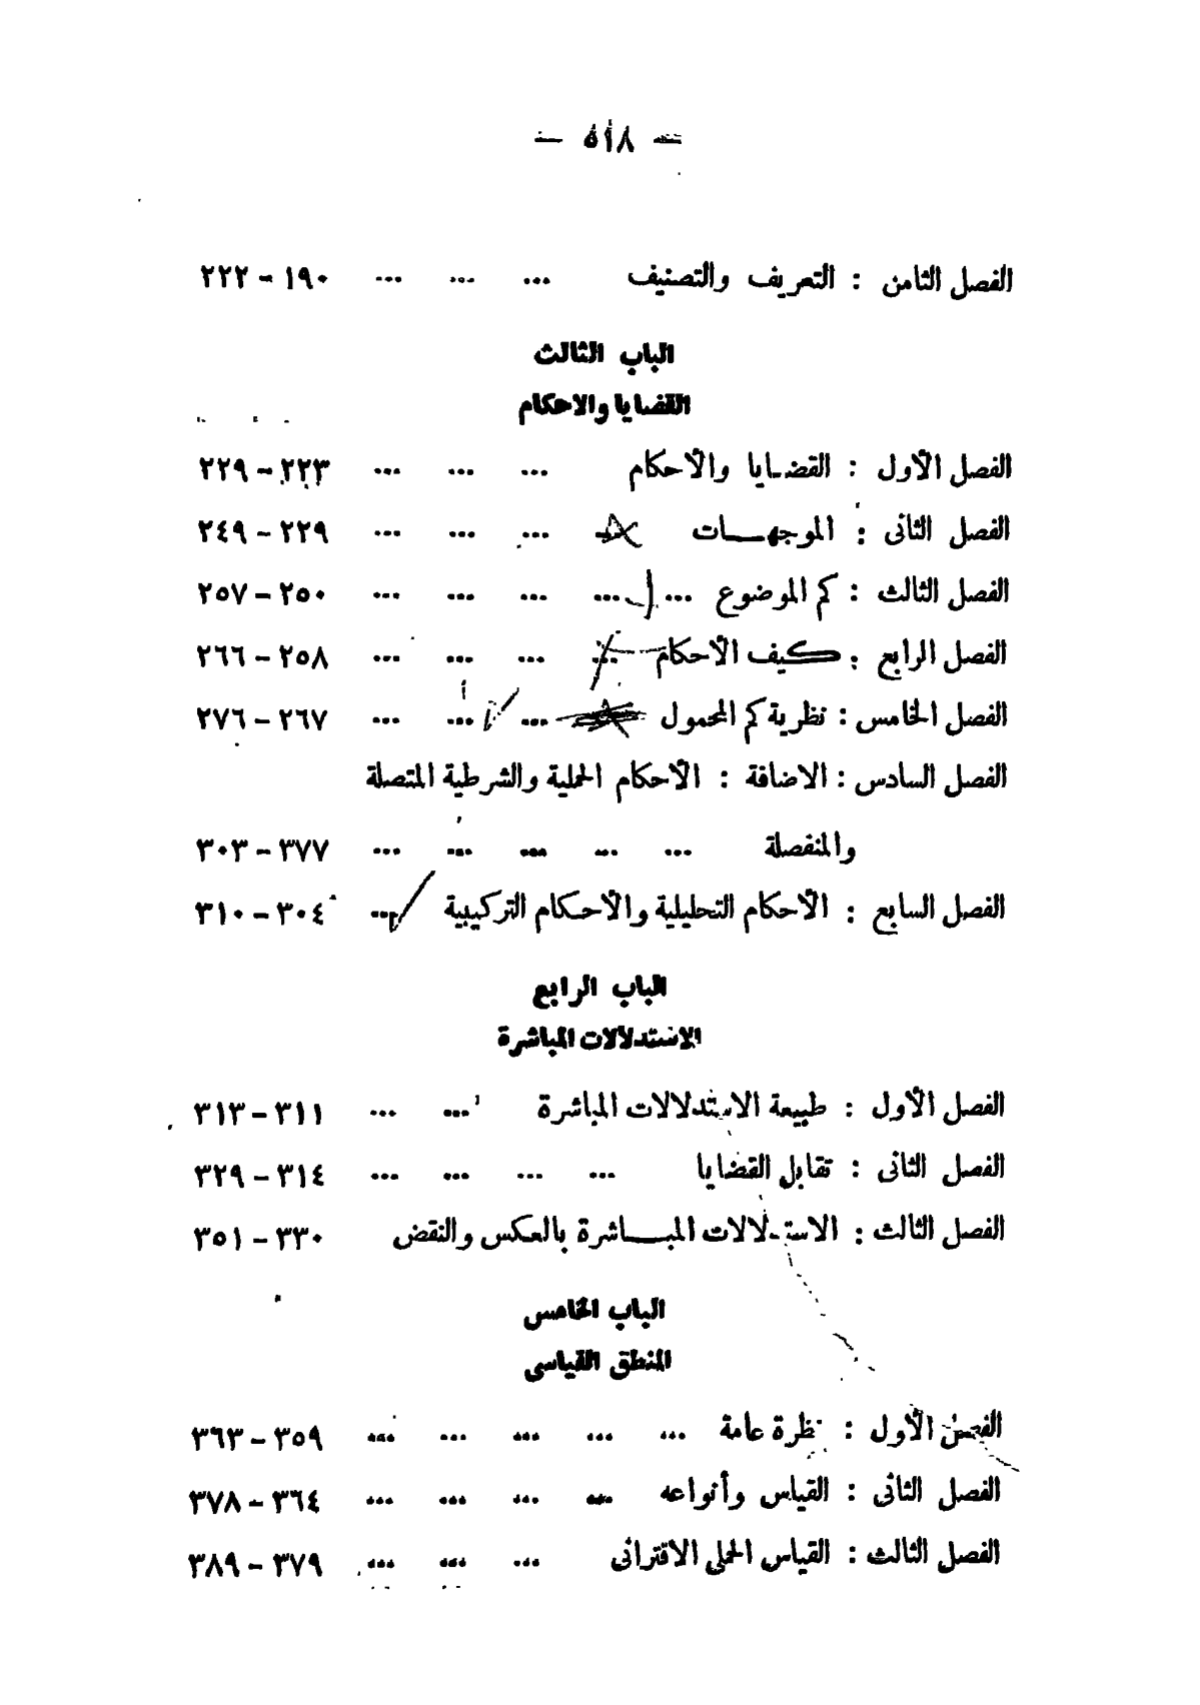 — ٥١٨ —
الفصل الثامن : التعريف والتصنيف ... ... ... ١٩٠ – ٢٢٢
الباب الثالث
القضايا والاحكام
الفصل الأول : القضايا والأحكام ... ... ... ٢٢٣ – ٢٢٩
الفصل الثانى : الموجهات ... ... ... ٢٢٩ – ٢٤٩
الفصل الثالث : كم الموضوع ... ... ... ... ... ٢٥٠ – ٢٥٧
الفصل الرابع : كيف الأحكام ... ... ... ... ٢٥٨ – ٢٦٦
الفصل الخامس : نظرية كم المحمول ... ... ... ٢٦٧ – ٢٧٦
الفصل السادس : الاضافة : الأحكام الحملية والشرطية المتصلة
والمنفصلة ... ... ... ... ... ٣٧٧ – ٣٠٣
الفصل السابع : الأحكام التحليلية والأحكام التركيبية ... ٣٠٤ – ٣١٠
الباب الرابع
الاستدلالات المباشرة
الفصل الأول : طبيعة الاستدلالات المباشرة ... ... ٣١١ – ٣١٣
الفصل الثانى : تقابل القضايا ... ... ... ... ٣١٤ – ٣٢٩
الفصل الثالث : الاستدلالات المباشرة بالعكس والنقض ٣٣٠ – ٣٥١
الباب الخامس
المنطق القياسى
الفصل الأول : نظرة عامة ... ... ... ... ... ٣٥٩ – ٣٦٣
الفصل الثانى : القياس وأنواعه ... ... ... ... ٣٦٤ – ٣٧٨
الفصل الثالث : القياس الحملى الاقترانى ... ... ... ٣٧٩ – ٣٨٩